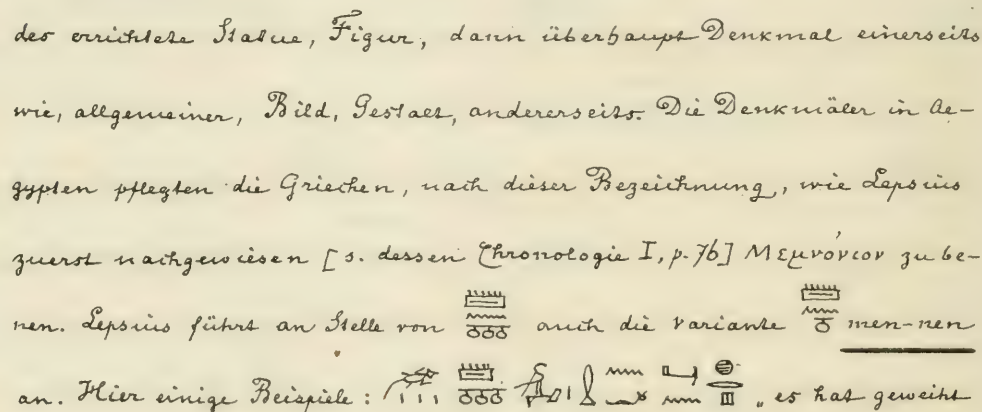 des errichtete Statue, Figur, dann überhaupt Denkmal einerseits
wie, allgemeiner, Bild, Gestalt, andererseits. Die Denkmäler in Ae-
gypten pflegten die Griechen, nach dieser Bezeichnung, wie Lepsius
zuerst nachgewiesen [s. dessen Chronologie I, p. 76] Μεμνόνιον zu be-
nen. Lepsius führt an Stelle von auch die Variante men-nen
an. Hier einige Beispiele: „es hat geweiht